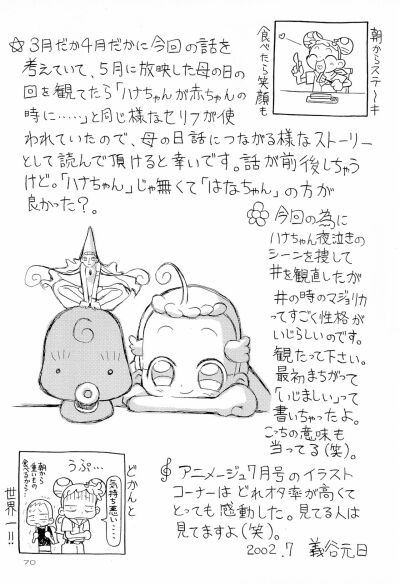 朝からステーキ
食べたら笑顔も
☆3月だか4月だかに今回の話を
考えていて、5月に放映した母の日の
回を観てたら「ハナちゃんが赤ちゃんの
時に……」と同じ様なセリフが使
われていたので、母の日話につながる様なストーリー
として読んで頂けると幸いです。話が前後しちゃう
けど。「ハナちゃん」じゃ無くて「はなちゃん」の方が
良かった?。
今回の為に
ハナちゃん夜泣きの
シーンを捜して
#を観直したが
#の時のマジョリカ
ってすごく性格が
いじらしいのです。
観たって下さい。
最初まちがって
「いじましい」って
書いちゃったよ。
こっちの意味も
当ってる(笑)。
どかんと
世界一!!
うぷ…
気持ち悪い…
朝から
重いもの
食べるから…
アニメージュ7月号のイラスト
コーナーは どれオタ率が高くて
とっても感動した。見てる人は
見てますよ(笑)。
2002.7 義谷元日
70